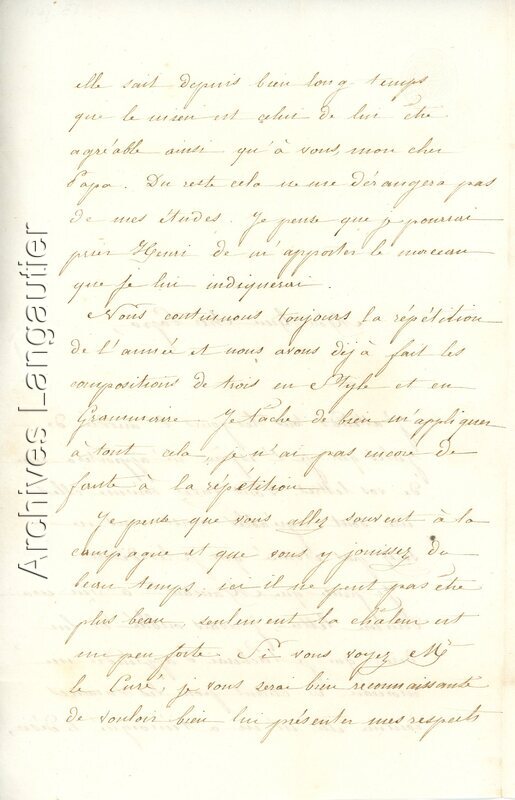 elle sait depuis bien long temps
que le mien est celui de lui être
agréable ainsi qu'à vous, mon cher
Papa. Du reste cela ne me dérangera pas
de mes études. Je pense que je pourrai
prier Henri de m'apporter le morceau
que je lui indiquerai.
Nous continuons toujours la répétition
de l'année et nous avons déjà fait les
compositions de trois en Style et en
Grammaire. Je tâche de bien m'appliquer
à tout cela, je n'ai pas encore de
faute à la répétition
Je pense que vous allez souvent à la
campagne et que vous y jouissez du
beau temps, ici il ne peut pas être
plus beau, seulement la châleur est
un peu forte. Si vous voyez Mr
le Curé, je vous serai bien reconnaissante
de vouloir bien lui présenter mes respects
Archives Langautier